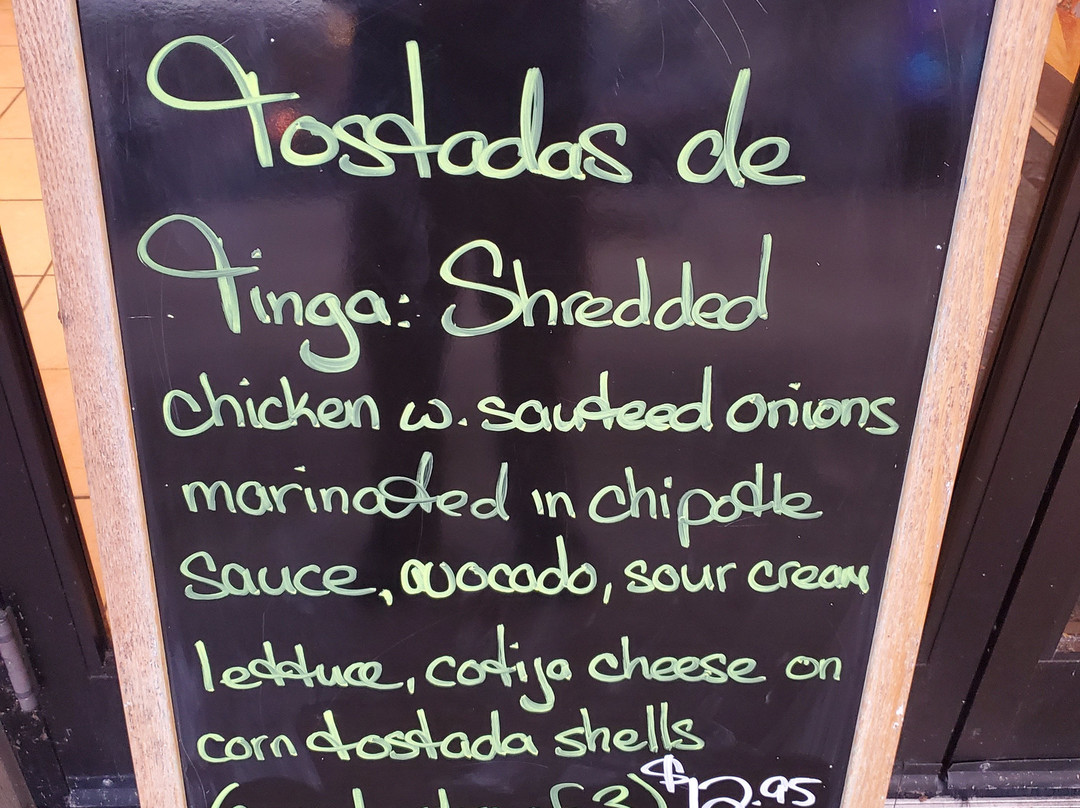 Tostadas de
Tinga: Shredded
chicken w. sauteed onions
marinated in chipotle
sauce, avocado, sour cream
lettuce, cotija cheese on
corn tostada shells
3) $12.95